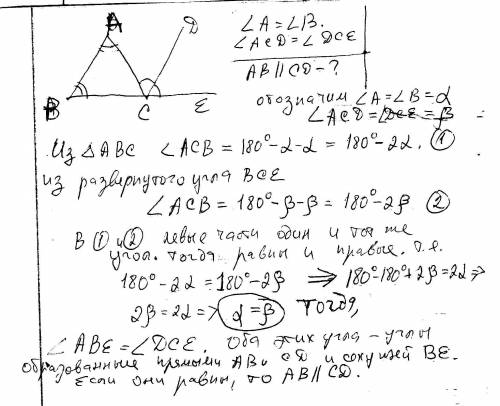 A
D
B
C
E
∠A=∠B.
∠ACD=∠DCE
AB∥CD-?
обозначим ∠A=∠B=α
∠ACD=∠DCE=β
Из △ABC ∠ACB = 180°-α-α = 180°-2α. ①
из развернутого угла BCE
∠ACB = 180°-β-β = 180°-2β ②
В ① и ② левые части один и тот же
угол. Тогда равны и правые. Т.е.
180°-2α = 180°-2β ⇒ 180°-180°+2β=2α ⇒
2β=2α ⇒ α=β Тогда,
∠ABE=∠DCE. Оба этих угла - углы
образованные прямыми AB и CD и секущей BE.
Если они равны, то AB∥CD.